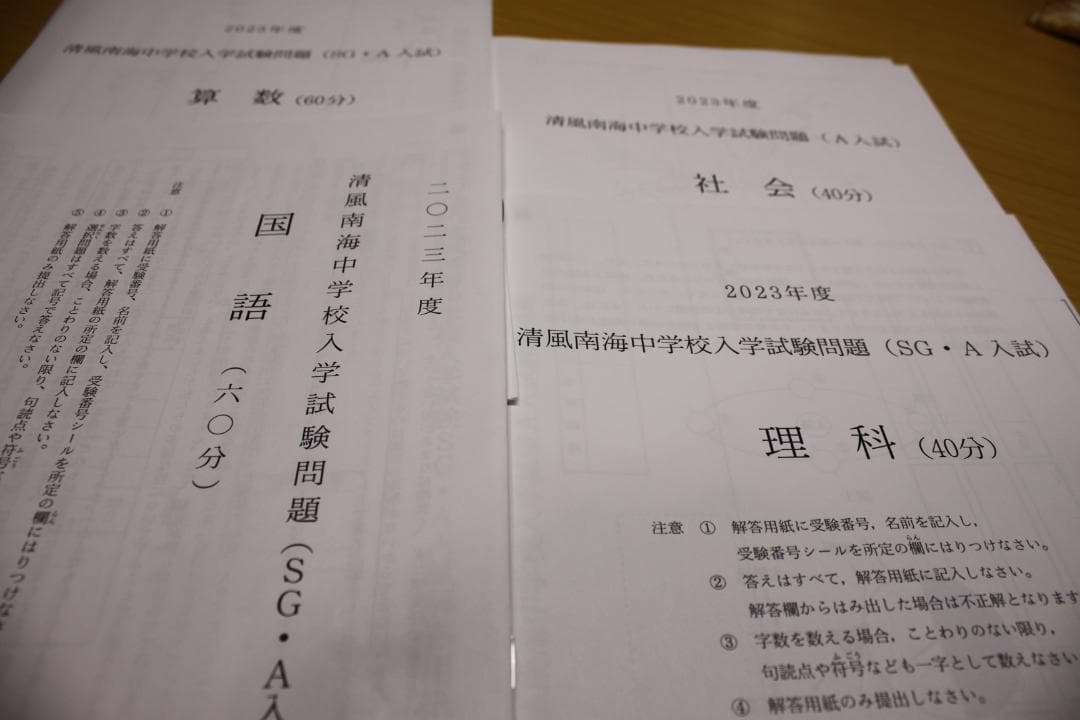 2023年度
清風南海中学校入学試験問題（SG・A入試）
算　数（60分）
二〇二三年度
清風南海中学校入学試験問題（SG・A入
国　語（六〇分）
注意
① 解答用紙に受験番号、名前を記入し、受験番号シールを所定の欄にはりつけなさ
② 答えはすべて、解答用紙の所定の欄に記入しなさい。
③ 字数を数える場合、ことわりのない限り、句読点や符号
④ 選択問題はすべて記号で答えなさい。
⑤ 解答用紙のみ提出しなさい。
2023年度
清風南海中学校入学試験問題（A入試）
社　会（40分）
2023年度
清風南海中学校入学試験問題（SG・A入試）
理　科（40分）
注意　①　解答用紙に受験番号，名前を記入し，
受験番号シールを所定の欄にはりつけなさい。
②　答えはすべて，解答用紙に記入しなさい。
解答欄からはみ出した場合は不正解となります
③　字数を数える場合，ことわりのない限り，
句読点や符号なども一字として数えなさい
④　解答用紙のみ提出しなさい。